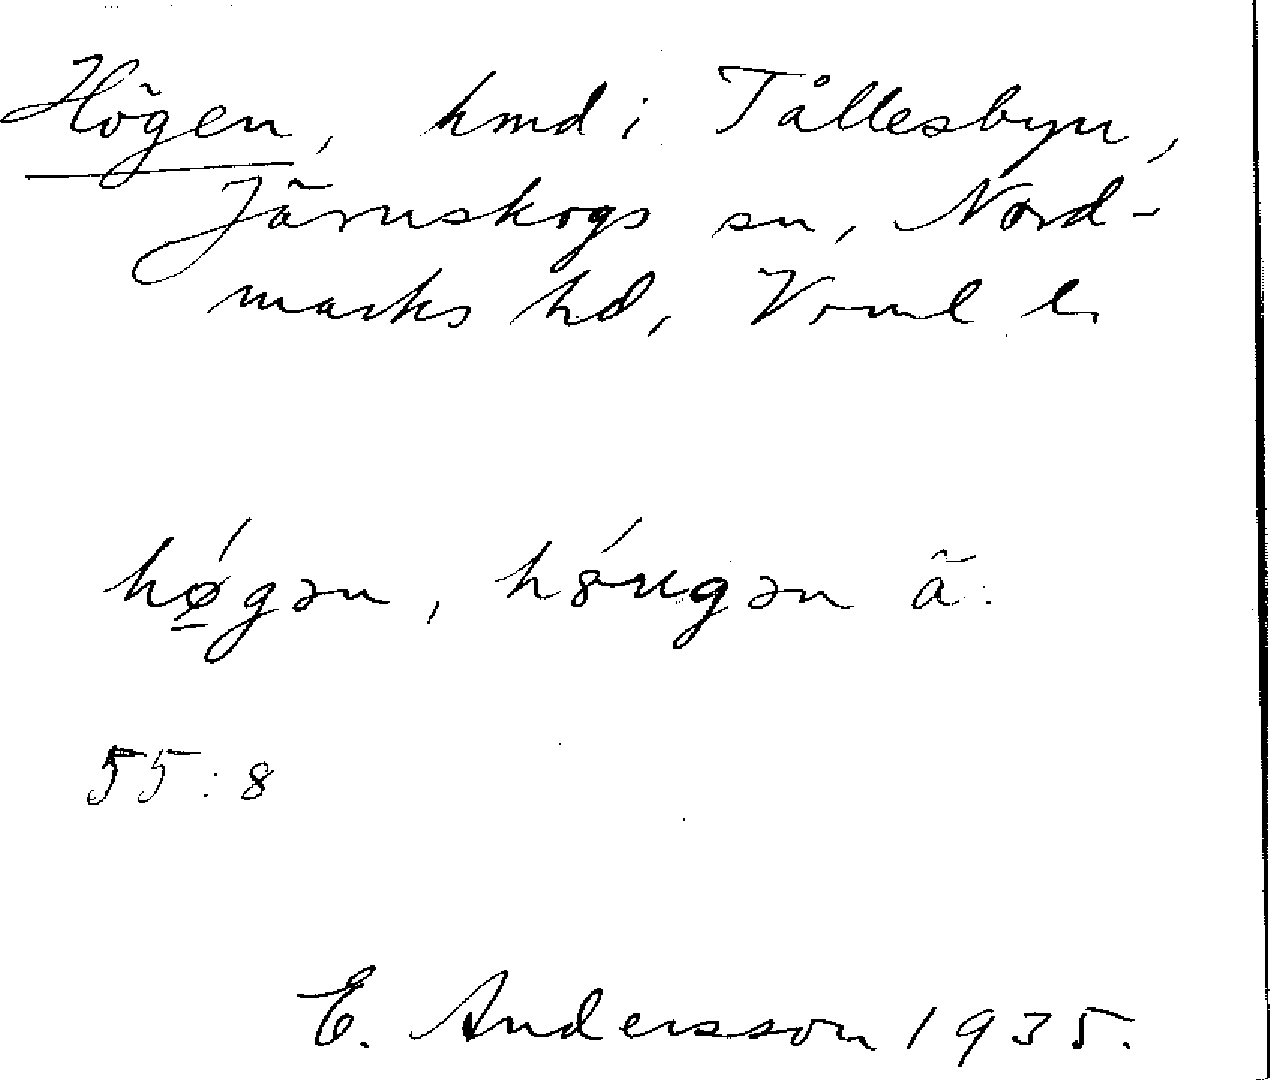 Högen, hmd i Tållesbyn,
Järnskogs sn, Nord-
marks hd, Vrml l.
hǿ̲gən, hǿugən ä.
55:8
E. Andersson 1935.